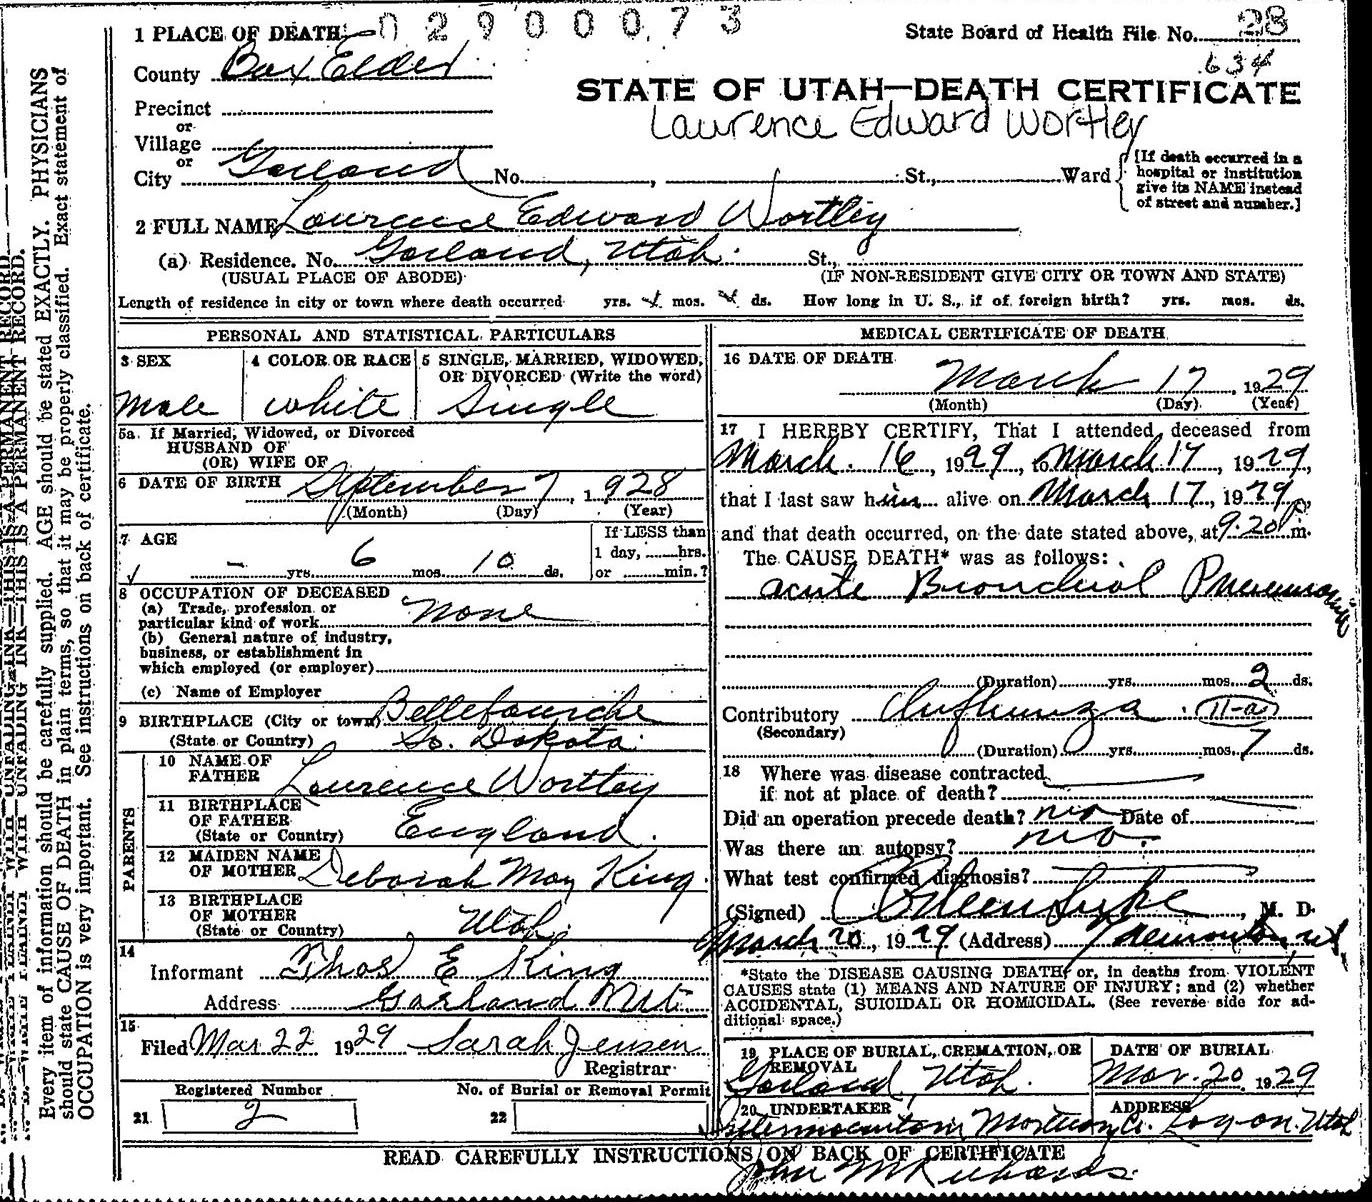 02900073
1 PLACE OF DEATH State Board of Health File No. 28
634
County Box Elder
STATE OF UTAH—DEATH CERTIFICATE
Lawrence Edward Wortley
Precinct
or
Village
or
City Garland No. , St., Ward
[If death occurred in a
hospital or institution
give its NAME instead
of street and number.]
2 FULL NAME Lawrence Edward Wortley
(a) Residence. No. Garland, Utah. St.,
(USUAL PLACE OF ABODE) (IF NON-RESIDENT GIVE CITY OR TOWN AND STATE)
Length of residence in city or town where death occurred yrs. 4 mos. ds. How long in U. S., if of foreign birth? yrs. mos. ds.
PERSONAL AND STATISTICAL PARTICULARS
3 SEX 4 COLOR OR RACE 5 SINGLE, MARRIED, WIDOWED,
OR DIVORCED (Write the word)
Male white Single
5a If Married, Widowed, or Divorced
HUSBAND OF
(OR) WIFE OF
6 DATE OF BIRTH September 7, 1928
(Month) (Day) (Year)
7 AGE If LESS than
1 day, hrs.
- yrs. 6 mos. 10 ds. or min.?
8 OCCUPATION OF DECEASED
(a) Trade, profession or
particular kind of work none
(b) General nature of industry,
business, or establishment in
which employed (or employer)
(c) Name of Employer
9 BIRTHPLACE (City or town) Bellefourche
(State or Country) So. Dakota.
PARENTS
10 NAME OF
FATHER Lawrence Wortley
11 BIRTHPLACE
OF FATHER
(State or Country) England.
12 MAIDEN NAME
OF MOTHER Deborah May King.
13 BIRTHPLACE
OF MOTHER
(State or Country) Utah
14
Informant Thos E King
Address Garland Ut.
15
Filed Mar 22 1929 Sarah Jensen
Registrar
Registered Number No. of Burial or Removal Permit
21 2 22
MEDICAL CERTIFICATE OF DEATH
16 DATE OF DEATH
March 17, 1929
(Month) (Day) (Year)
17 I HEREBY CERTIFY, That I attended deceased from
March. 16, 1929, to March 17, 1929,
that I last saw him alive on March 17, 1929,
and that death occurred, on the date stated above, at 9.20 P.m.
The CAUSE DEATH* was as follows:
acute Bronchial Pneumonia
(Duration) yrs. mos. 2 ds.
Contributory Influenza. 11-a
(Secondary)
(Duration) yrs. mos. 7 ds.
18 Where was disease contracted
if not at place of death?
Did an operation precede death? no Date of
Was there an autopsy? no.
What test confirmed diagnosis?
(Signed) , M. D.
March 20, 1929 (Address) Tremonton, Ut.
*State the DISEASE CAUSING DEATH, or, in deaths from VIOLENT
CAUSES state (1) MEANS AND NATURE OF INJURY; and (2) whether
ACCIDENTAL, SUICIDAL OR HOMICIDAL. (See reverse side for ad-
ditional space.)
19 PLACE OF BURIAL, CREMATION, OR
REMOVAL
Garland, Utah.
DATE OF BURIAL
Mar. 20, 1929
20 UNDERTAKER ADDRESS
Intermountain Mortuary Co. Logan Utah
READ CAREFULLY INSTRUCTIONS ON BACK OF CERTIFICATE
John M Richards.
N. B.—WRITE PLAINLY WITH UNFADING INK—THIS IS A PERMANENT RECORD.
Every item of information should be carefully supplied. AGE should be stated EXACTLY. PHYSICIANS
should state CAUSE OF DEATH in plain terms, so that it may be properly classified. Exact statement of
OCCUPATION is very important. See instructions on back of certificate.